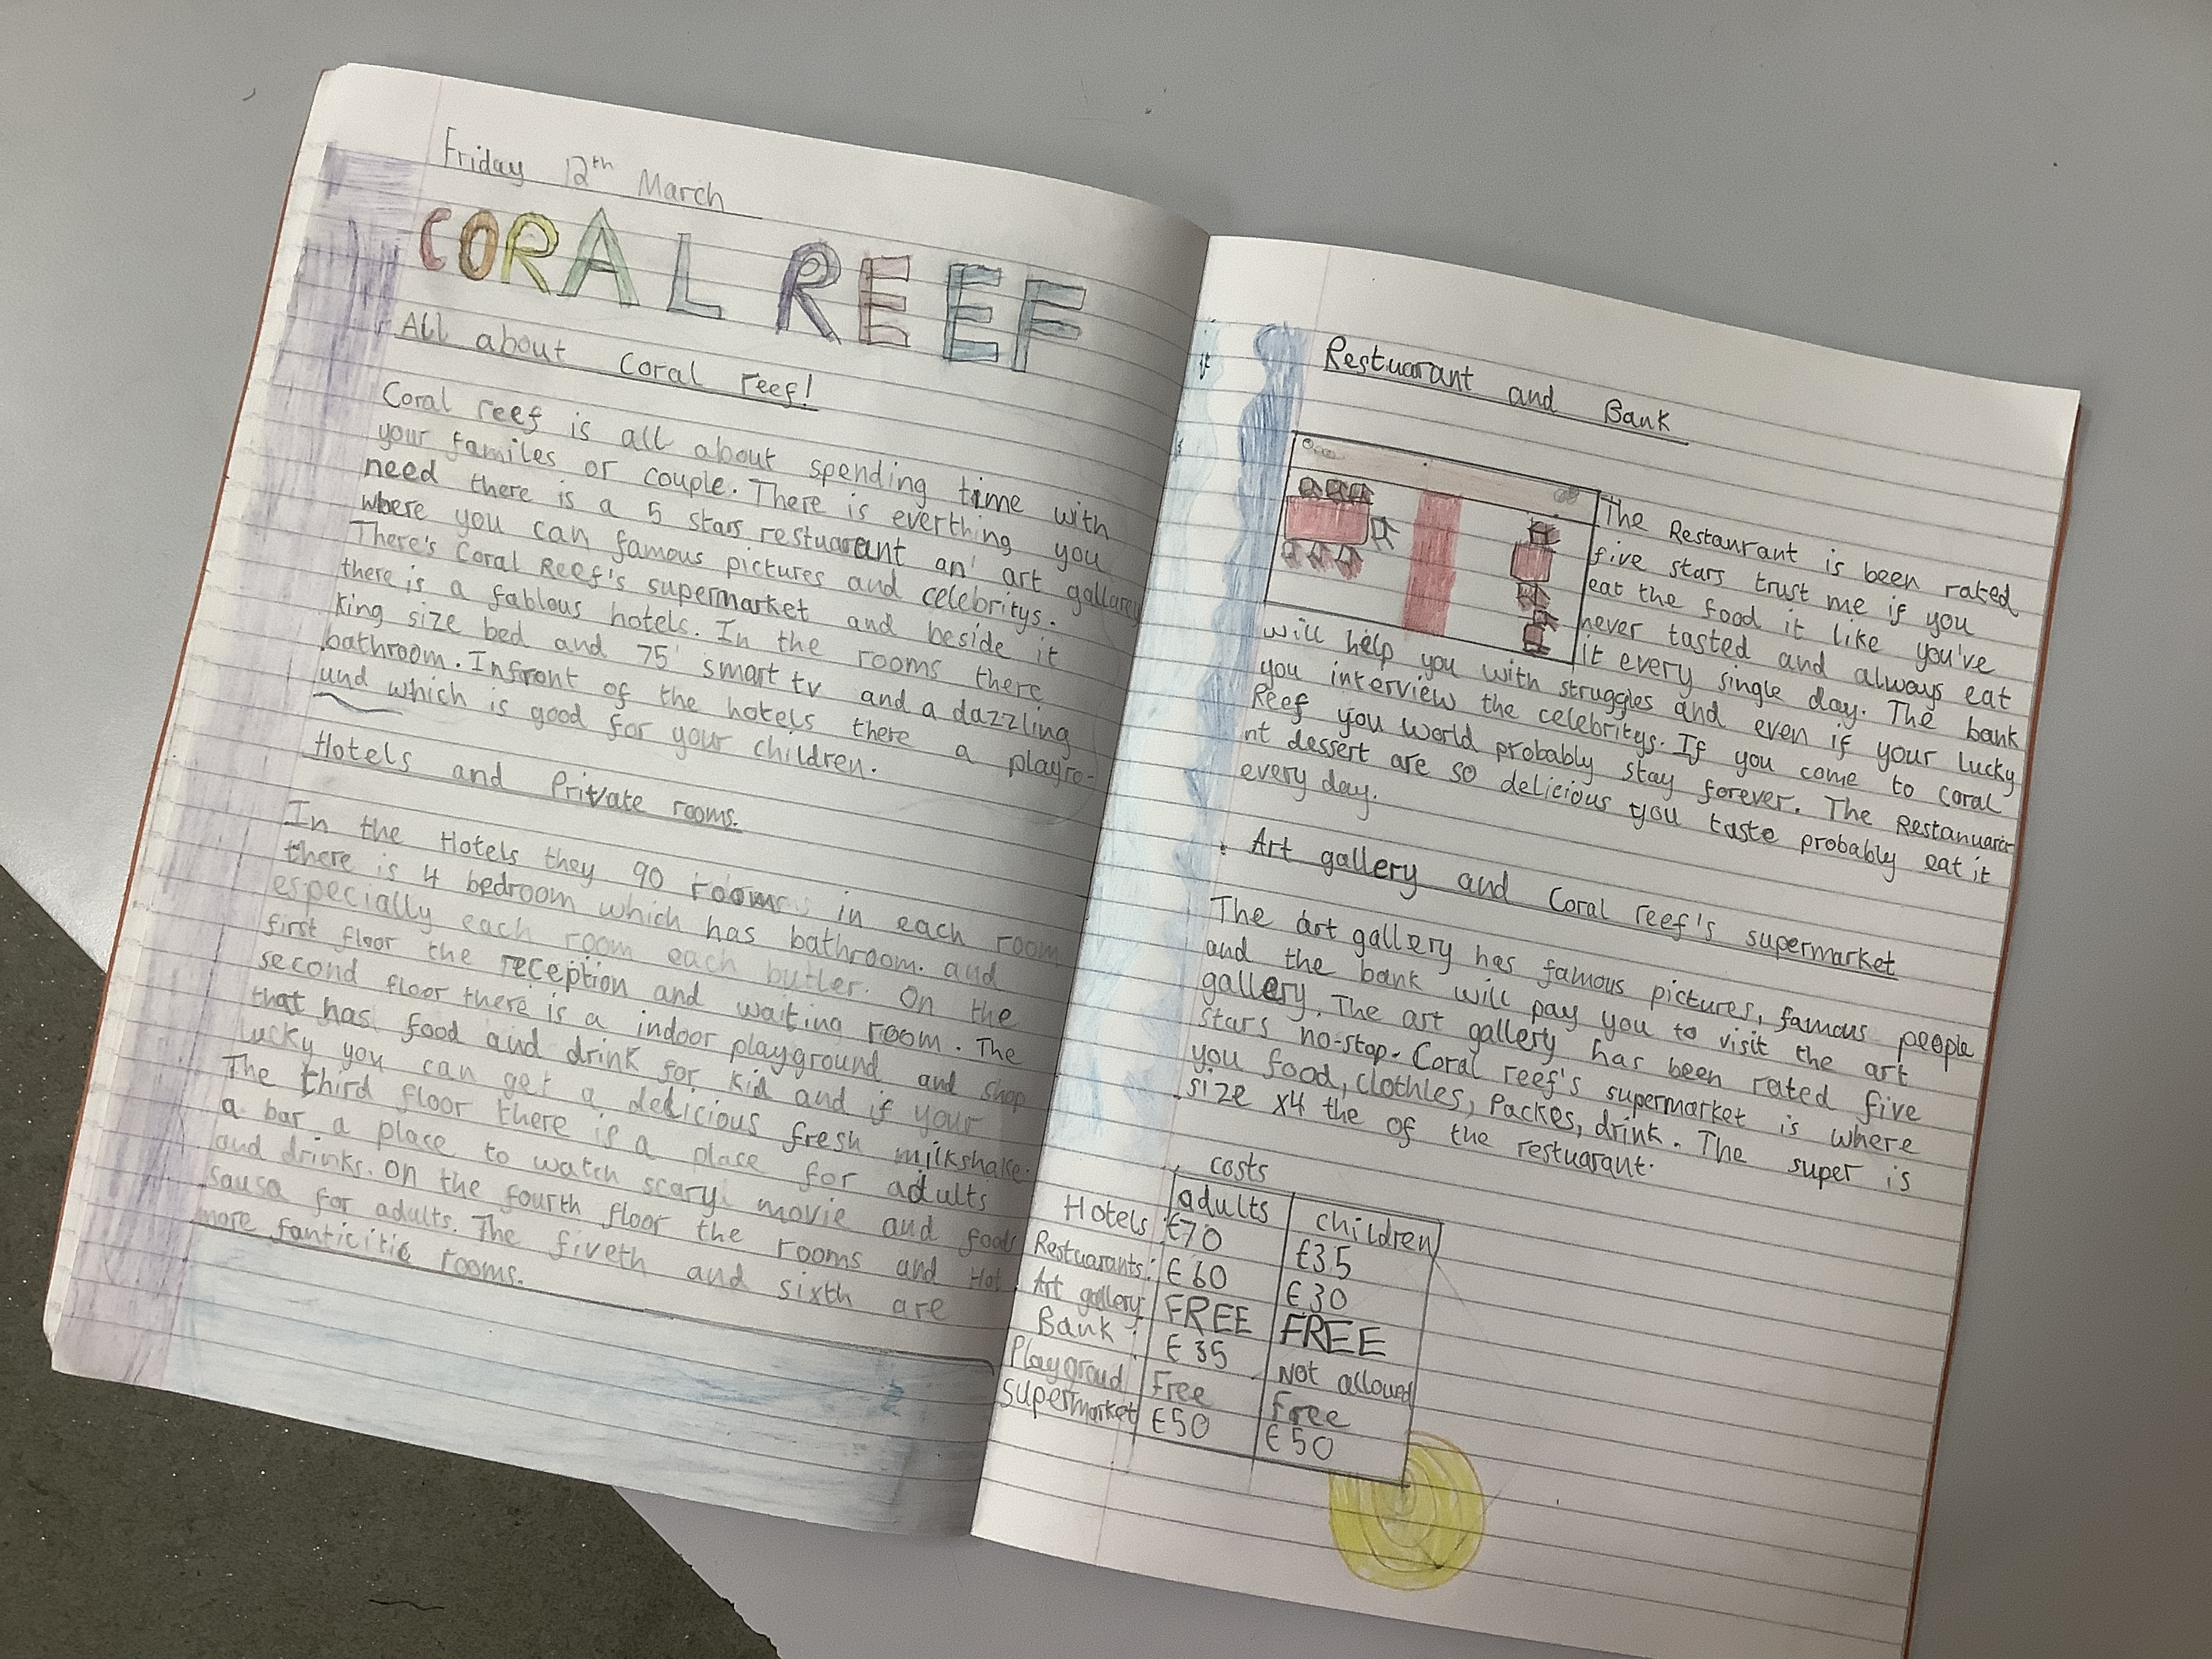 Friday 12th March
CORAL REEF
All about Coral reef!
Coral reef is all about spending time with
your familes or couple. There is everthing you
need there is a 5 stars restuarant an' art gallarey
where you can famous pictures and celebritys.
There's Coral Reef's supermarket and beside it
there is a fablous hotels. In the rooms there
king size bed and 75' smart tv and a dazzling
bathroom. Infront of the hotels there a playgro-
und which is good for your children.
Hotels and Private rooms.
In the Hotels they 90 rooms in each room
there is 4 bedroom which has bathroom. and
especially each room each butler. On the
first floor the reception and waiting room. The
second floor there is a indoor playground and shop
that has food and drink for kid and if your
lucky you can get a delicious fresh milkshake.
The third floor there is a place for adults
a bar a place to watch scary movie and foods
and drinks. On the fourth floor the rooms and Hot
sausa for adults. The fiveth and sixth are
more fanticitic rooms.
Restuarant and Bank
The Restaurant is been rated
five stars trust me if you
eat the food it like you've
never tasted and always eat
it every single day. The bank
will help you with struggles and even if your lucky
you interview the celebritys. If you come to coral
Reef you world probably stay forever. The Restanuara
nt dessert are so delicious you taste probably eat it
every day.
Art gallery and Coral reef's supermarket
The art gallery has famous pictures, famous people
and the bank will pay you to visit the art
gallery. The art gallery has been rated five
stars no-stop. Coral reef's supermarket is where
you food, clothles, Packes, drink. The super is
size x4 the of the restuarant.
costs
adults children
Hotels £70 £35
Restuarants: £60 £30
Art gallery: FREE FREE
Bank: £35 Not allowed
Playgroud Free Free
Supermarket £50 £50